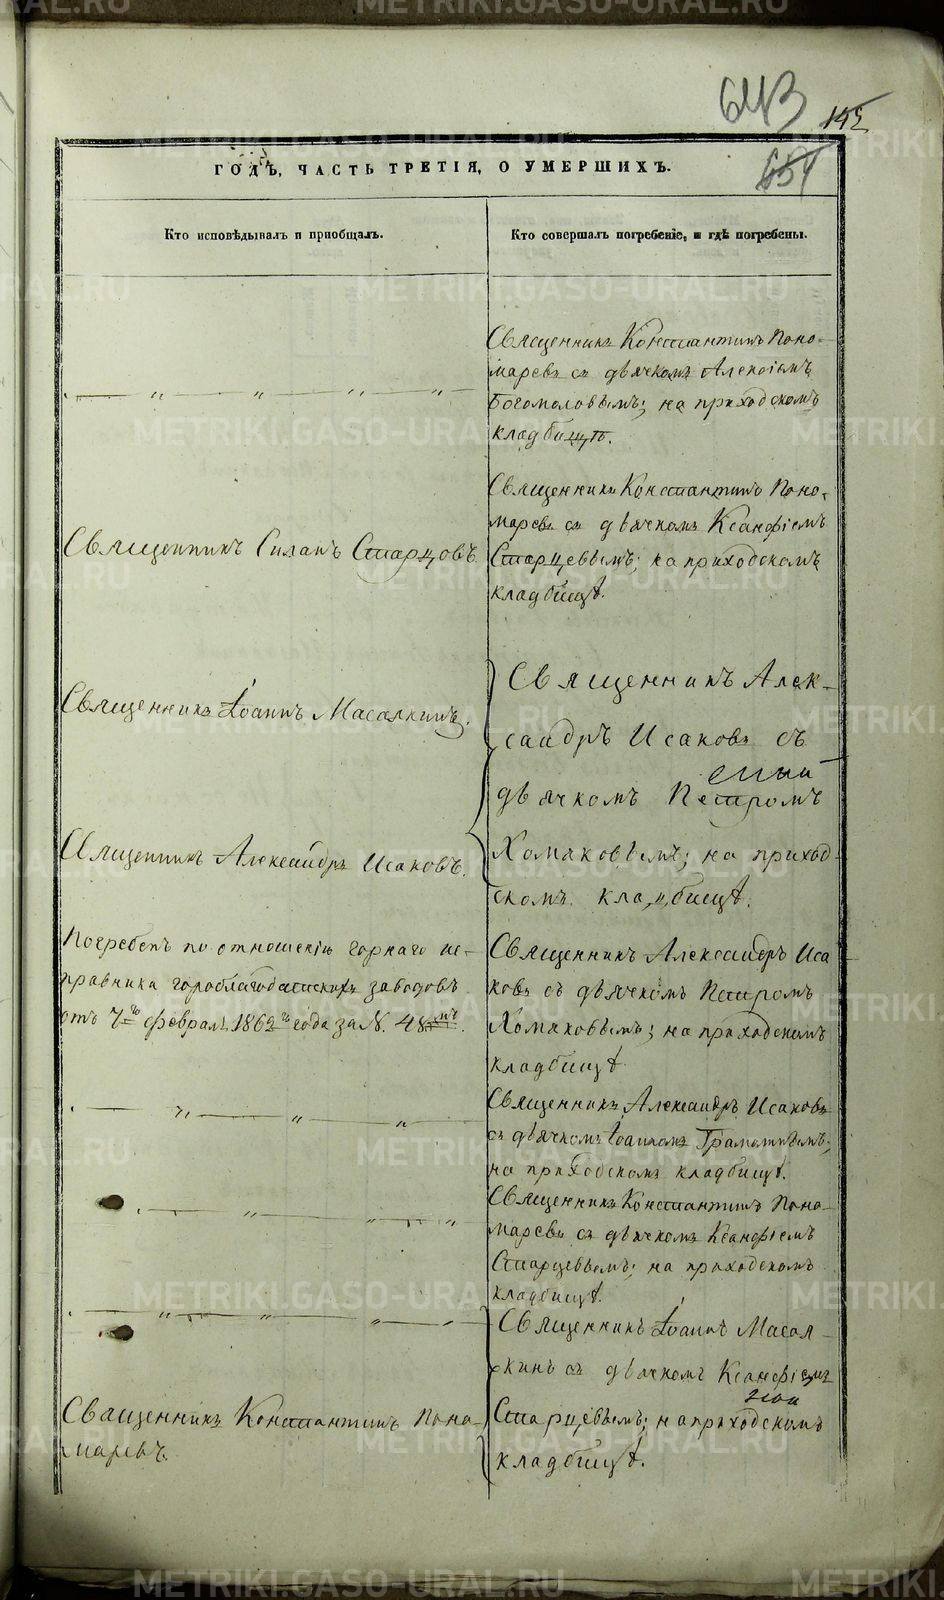 643
142
651
ГОДЪ, ЧАСТЬ ТРЕТІЯ, О УМЕРШИХЪ.
Кто исповѣдывалъ и пріобщалъ.
Кто совершалъ погребеніе, и гдѣ погребены.
Священникъ Константинъ Поно-
маревъ съ дьячкомъ Алексіемъ
Богомоловымъ; на приходскомъ
кладбищѣ.
Священникъ Силанъ Старцовъ
Священникъ Константинъ Поно-
маревъ съ дьячкомъ Ксанфіемъ
Старцевымъ; на приходскомъ
кладбищѣ.
Священникъ Іоаннъ Масалкинъ.
Священникъ Александръ Исаковъ.
Священникъ Алек-
сандръ Исаковъ съ
дьячкомъ Петромъ
Хомяковымъ; на приход-
скомъ кладбищѣ.
Погребенъ по отношенію горнаго ис-
правника гороблагодатскихъ заводовъ
отъ 7го февраля 1862го года за N. 48мъ.
Священникъ Александръ Иса
ковъ съ дьячкомъ Петромъ
Хомяковымъ; на приходскомъ
кладбищѣ
Священникъ Александръ Исаковъ
съ дьячкомъ Іоанномъ
на приходскомъ кладбищѣ.
Священникъ Константинъ Поно-
маревъ съ дьячкомъ Ксанфіемъ
Старцевымъ; на приходскомъ
кладбищѣ.
Священникъ Константинъ Поно-
маревъ.
Священникъ Іоаннъ Масал-
кинъ съ дьячкомъ Ксанфіемъ
Старцевымъ; на приходскомъ
кладбищѣ.
METRIKI.GASO-URAL.RU